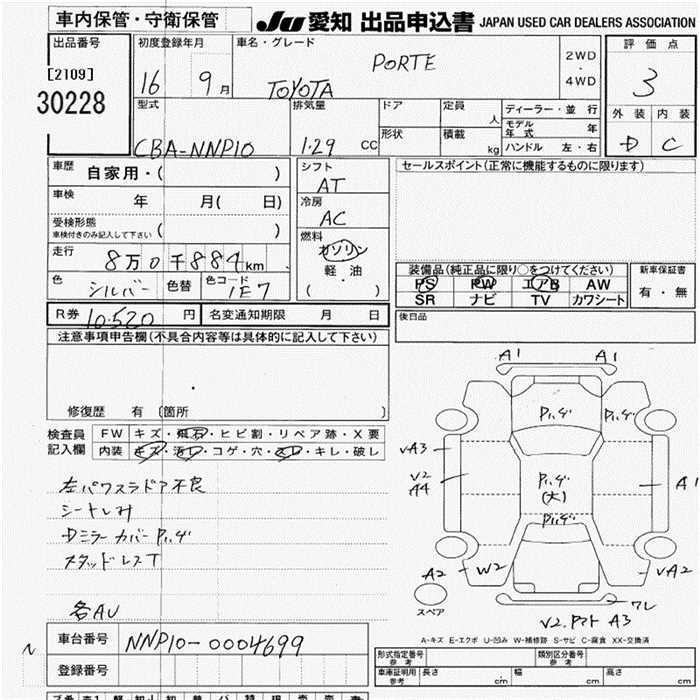 車内保管・守衛保管
JU 愛知 出品申込書 JAPAN USED CAR DEALERS ASSOCIATION
出品番号
[2109]
30228
初度登録年月
16 9月
車名・グレード
TOYOTA PORTE
2WD
・
4WD
評価点
3
外装 内装
D C
型式
CBA-NNP10
排気量
1.29 CC
ドア
形状
定員
人
積載
kg
ディーラー・並行
モデル年式 年
ハンドル 左・右
車歴 自家用・( )
車検 年 月( 日)
受検形態
車検付きのみ記入して下さい ( )
走行
8万0千884km
色 シルバー 色替 色コード 1E7
シフト
AT
冷房
AC
燃料
ガソリン
軽油
( ・ )
セールスポイント(正常に機能するものに限ります)
装備品(純正品に限り○をつけてください)
PS PW エアB AW
SR ナビ TV カワシート
新車保証書
有・無
後日品
R券 10.520 円 名変通知期限 月 日
注意事項申告欄(不具合内容等は具体的に記入して下さい)
修復歴 有 〔箇所 〕
検査員記入欄
FW キズ・飛石・ヒビ割・リペア跡・X要
内装 キズ・汚レ・コゲ・穴・スレ・キレ・破レ
左パワスラドア不良
シートしみ
Dミラーカバー
スタッドレスT
各AU
A1 A1
vA3
v2
A4
(大)
A1
A2 W2 vA2
ワレ
スペア
A3
A-キズ E-エクボ U-凹み W-補修跡 S-サビ C-腐食 XX-交換済
N
車台番号 NNP10-0004699
登録番号
形式指定番号 参考 類別区分番号 参考
車庫証明用 参考 長さ cm 幅 cm 高さ cm